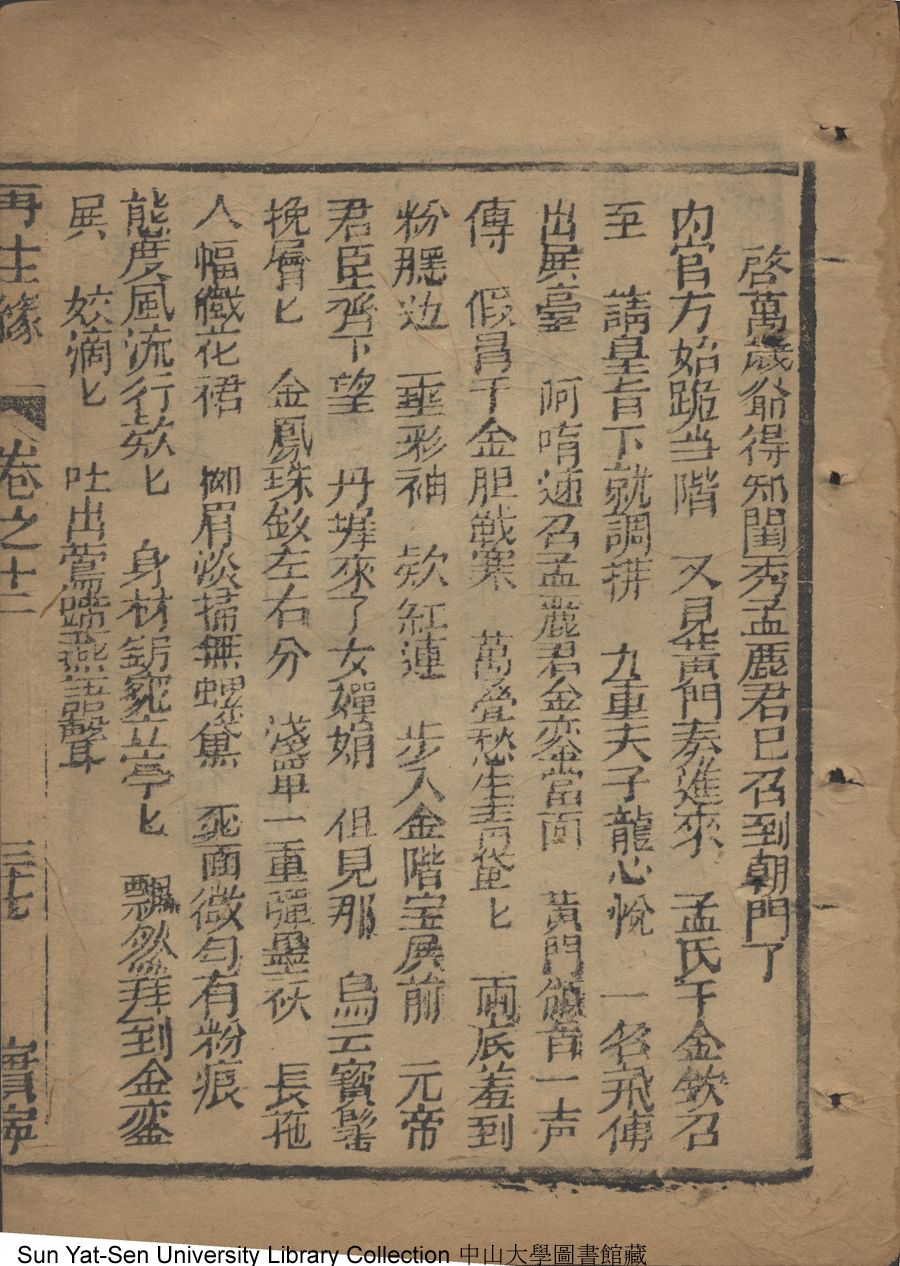 啓萬歲爺得知閨秀孟麗君已召到朝門了
內官方始跪当階 又見黃門奏進來 孟氏千金欽召
至 請皇旨下就調排 九重夫子龍心悅 一名飛傳
出展臺 阿唷速召孟麗君金鑾當面 黃門領旨一声
傳 假冒千金胆戰寒 萬疊愁生青黛匕 兩底羞到
粉腮边 垂彩袖 欵紅蓮 步入金階宝展前 元帝
君臣齊下望 丹墀來了女嬋娟 但見那 烏云寳髻
挽層匕 金鳳珠釵左右分 淺罩一重彈墨衣 長拖
八幅纖花裙 柳眉淡掃無螺黛 死面微勻有粉痕
態度風流行欵匕 身材窈窕立亭匕 飄然拜到金鑾
展 姣滴匕 吐出鶯啼燕語聲
再生緣 卷之十二 三十七 寳寧
Sun Yat-Sen University Library Collection 中山大學圖書館藏